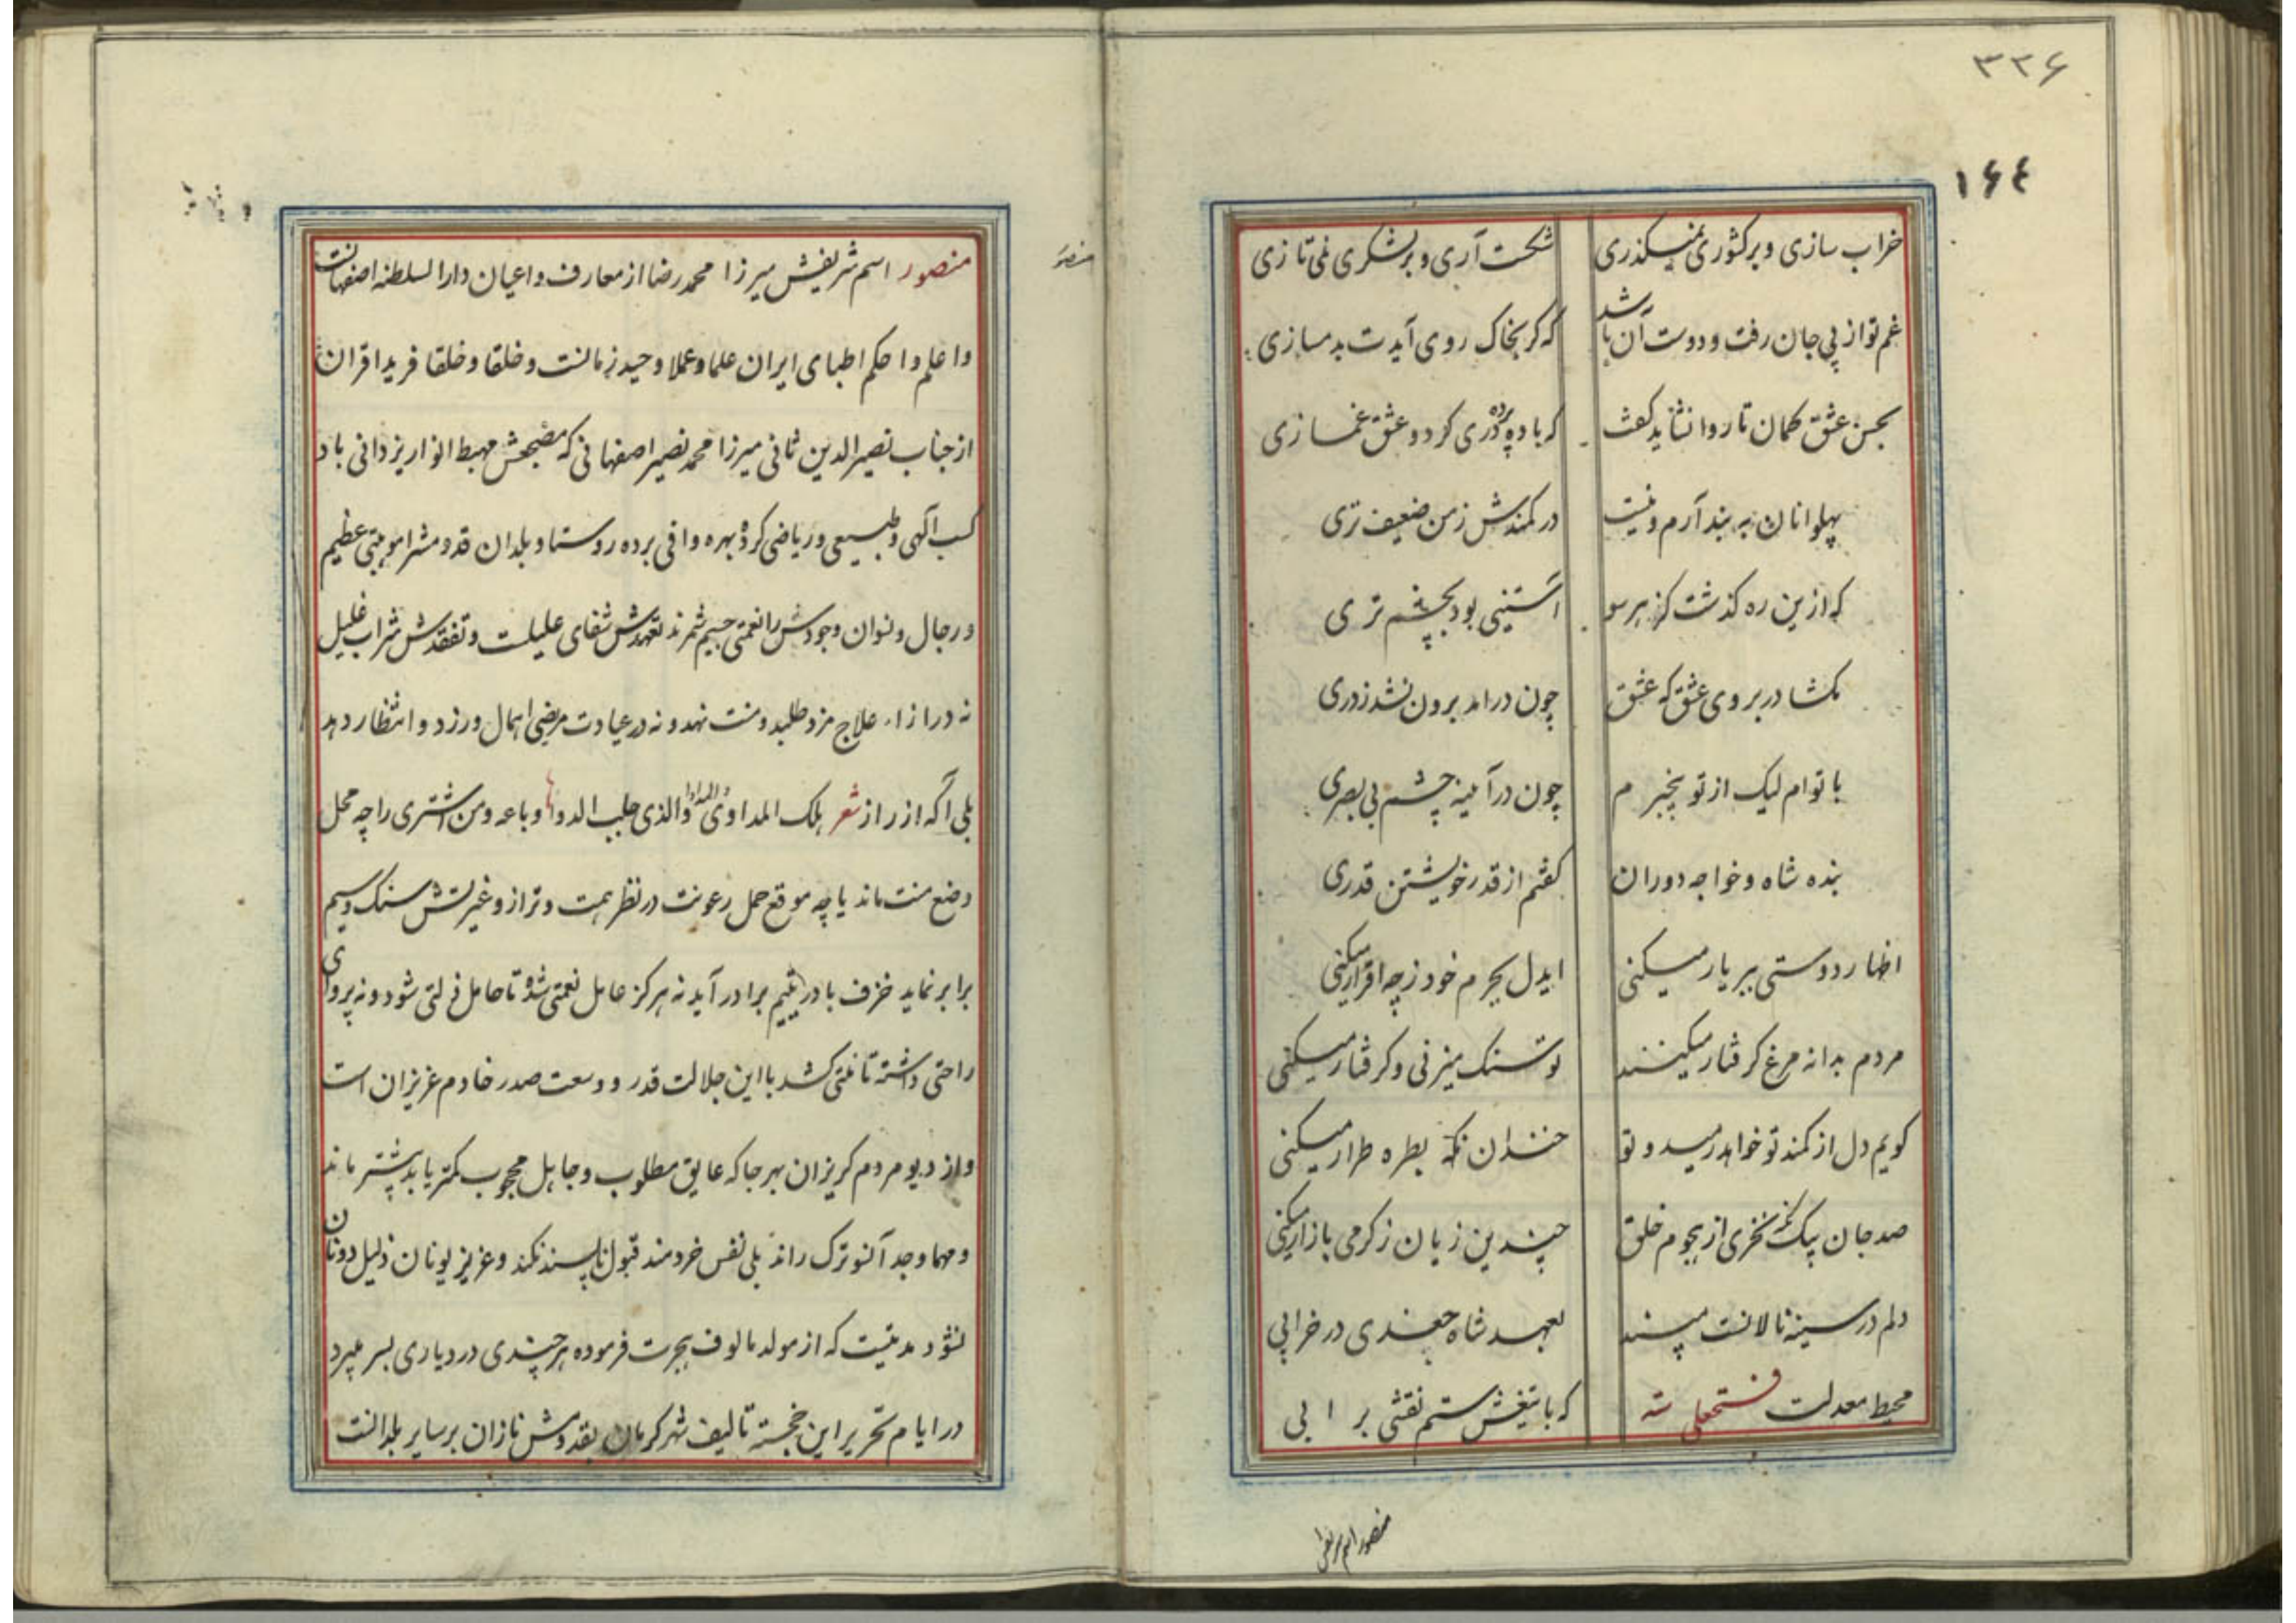 ۳۳۶
۱۶۴
خراب سازی و بر کشوری نمیکذری شکست آری و بر لشکری نمی تازی
غم تو از پی جان رفت و دوست آن باشد که کر بخاک روی آیدت بدمسازی
بحسن عشق کمان تا روا نشاید کفت که باده پرده دری کرد و عشق غمازی
پهلوانان به بند آرم و نیست در کمندش ز من ضعیف تری
که ازین ره کذشت کز هر سو آستینی بود بچشم تری
مکشا در بروی عشق که عشق چون درامد برون نشد ز دری
با توام لیک از تو بیخبرم چون در آینه چشم بی بصری
بنده شاه و خواجه دوران کفتم از قدر خویشتن قدری
اظهار دوستی بر یار میکنی ایدل بجرم خود ز چه اقرار میکنی
مردم بدانه مرغ کرفتار میکنند تو سنک میزنی و کرفتار میکنی
کویم دل از کمند تو خواهد رمید و تو خندان نکه بطره طرار میکنی
صد جان بیک نکه نخری از هجوم خلق چندین زیان ز کرمی بازار میکنی
دلم در سینه نالانست مپسند بعهد شاه جغدی در خرابی
محیط معدلت فتحعلی شه که با تیغش ستم نقشی بر ابی
منصور اسم شریفش
منصور
منصور اسم شریفش میرزا محمد رضا از معارف و اعیان دار السلطنه اصفهانست
و اعلم و احکم اطبای ایران علما و عملا وحید زمانست و خلقا و خلقا فرید اقران
از جناب نصیر الدین ثانی میرزا محمد نصیر اصفهانی که مضجعش مهبط انوار یزدانی باد
کسب آکهی و طبیعی و ریاضی کرده بهره وافی برده روستا و بلدان قدومش را موهبتی عظیم
و رجال و نسوان وجودش را نعمتی جسیم شمرند تعهدش شفای علیلست و تفقدش شراب غلیل
نه در ازاء علاج مزد طلبد و منت نهد و نه در عیادت مرضی اهمال ورزد و انتظار دهد
بلی آکه از راز شعر هلک المداوی و المداوا والذی جلب الدوا و باعه و من اشتری را چه محل
وضع منت ماند یا چه موقع حمل رعونت در نظر همت و ترازو غیرتش سنک و سیم
برابر نماید خزف با در یتیم برادر آید نه هرکز عامل نعمتی شده تا حامل ذلتی شود و نه پروای
راحتی داشته تا نقمتی کشد با این جلالت قدر و وسعت صدر خادم عزیزان است
و از دیو مردم کریزان بهر جا که عایق مطلوب و جاهل محجوب کمتر یابد بیشتر ماند
و مهما وجد آنسو ترک راند بلی نفس خردمند قبول ناپسند نکند و عزیز یونان ذلیل دونان
نشود مدتیست که از مولد مالوف هجرت فرموده هر چندی در دیاری بسر میبرد
در ایام تحریر این خجسته تالیف شهر کرمان بقدومش نازان بر سایر بلدانست